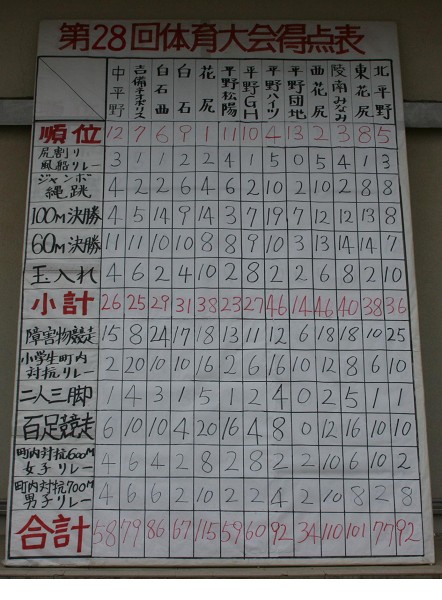 第28回体育大会得点表
中平野 吉備ネオポリス 白石西 白石 花尻 平野松陽 平野GH 平野ハイツ 平野団地 西花尻 陵南みなみ 東花尻 北平野
順位 12 7 6 9 1 11 10 4 13 2 3 8 5
尻割り
風船リレー 3 1 1 2 2 4 1 5 0 5 4 1 3
ジャンボ
縄跳 4 2 2 6 4 6 2 10 2 10 2 8 8
100M決勝 4 5 14 9 14 3 7 19 7 12 12 13 8
60M決勝 11 11 10 10 8 8 9 10 3 13 14 14 7
玉入れ 4 6 2 4 10 2 8 2 2 6 8 2 10
小計 26 25 29 31 38 23 27 46 14 46 40 38 36
障害物競走 15 8 24 17 18 13 11 12 6 18 18 10 25
小学生町内
対抗リレー 2 20 10 10 16 2 6 16 10 12 8 6 10
二人三脚 1 4 3 1 5 1 2 4 0 2 5 1 1
百足競走 6 10 10 4 20 16 4 8 0 12 16 10 10
町内対抗600M
女子リレー 4 6 4 2 8 2 8 2 2 10 6 10 2
町内対抗700M
男子リレー 4 6 6 2 10 2 2 4 2 10 8 2 8
合計 58 79 86 67 115 59 60 92 34 110 101 77 92